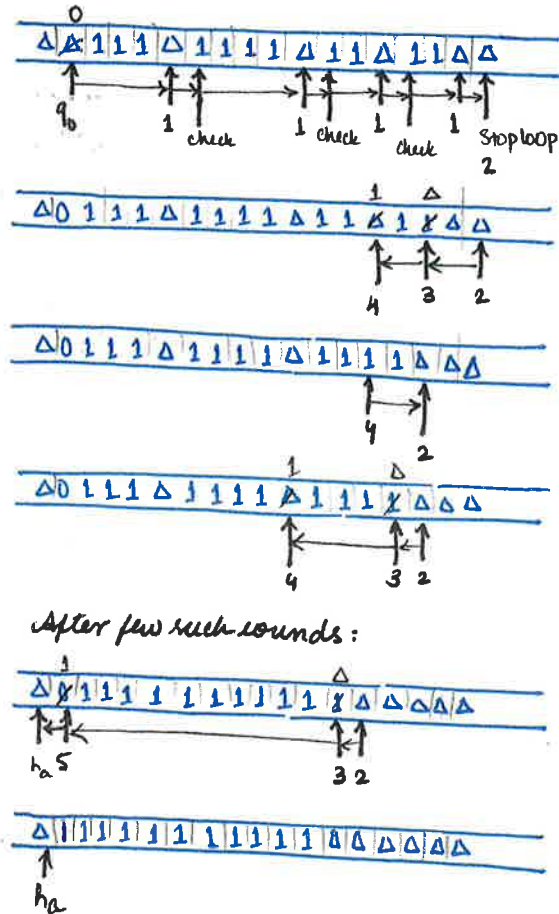 0
Δ Δ 1 1 1 Δ 1 1 1 1 Δ 1 1 Δ 1 1 Δ Δ
q₀ 1 check 1 check 1 check 1 Stop loop
2
1 Δ
Δ 0 1 1 1 Δ 1 1 1 1 Δ 1 1 Δ 1 1 Δ Δ
4 3 2
Δ 0 1 1 1 Δ 1 1 1 1 Δ 1 1 1 1 Δ Δ Δ
4 2
1 Δ
Δ 0 1 1 1 Δ 1 1 1 1 Δ 1 1 1 1 Δ Δ Δ
4 3 2
After few such rounds:
1 Δ
Δ 0 1 1 1 1 1 1 1 1 1 1 1 Δ Δ Δ Δ Δ
hₐ 5 3 2
Δ 1 1 1 1 1 1 1 1 1 1 1 Δ Δ Δ Δ Δ Δ
hₐ